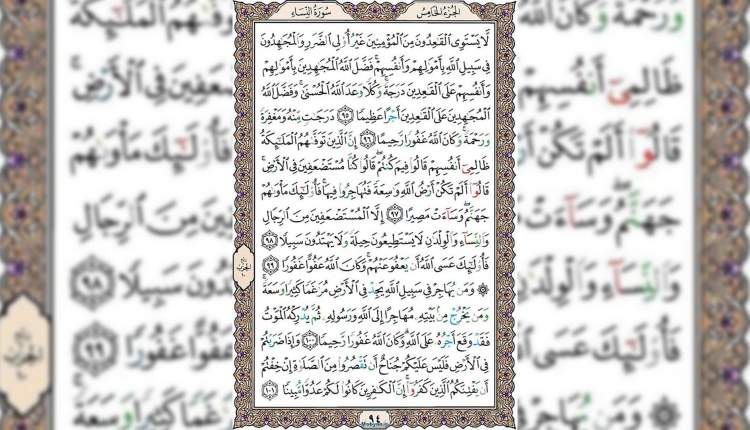 سُورَةُ النِّسَاءِ
الجُزءُ الخَامِسُ
لَّا يَسْتَوِى الْقَٰعِدُونَ مِنَ الْمُؤْمِنِينَ غَيْرُ أُو۟لِى الضَّرَرِ وَالْمُجَٰهِدُونَ
فِى سَبِيلِ اللَّهِ بِأَمْوَٰلِهِمْ وَأَنفُسِهِمْ ۚ فَضَّلَ اللَّهُ الْمُجَٰهِدِينَ بِأَمْوَٰلِهِمْ
وَأَنفُسِهِمْ عَلَى الْقَٰعِدِينَ دَرَجَةً ۚ وَكُلًّا وَعَدَ اللَّهُ الْحُسْنَىٰ ۚ وَفَضَّلَ اللَّهُ
الْمُجَٰهِدِينَ عَلَى الْقَٰعِدِينَ أَجْرًا عَظِيمًا ٩٥ دَرَجَٰتٍ مِّنْهُ وَمَغْفِرَةً
وَرَحْمَةً ۚ وَكَانَ اللَّهُ غَفُورًا رَّحِيمًا ٩٦ إِنَّ الَّذِينَ تَوَفَّىٰهُمُ الْمَلَٰٓئِكَةُ
ظَالِمِىٓ أَنفُسِهِمْ قَالُوا۟ فِيمَ كُنتُمْ ۖ قَالُوا۟ كُنَّا مُسْتَضْعَفِينَ فِى الْأَرْضِ ۚ
قَالُوٓا۟ أَلَمْ تَكُنْ أَرْضُ اللَّهِ وَٰسِعَةً فَتُهَاجِرُوا۟ فِيهَا ۚ فَأُو۟لَٰٓئِكَ مَأْوَىٰهُمْ
جَهَنَّمُ ۖ وَسَآءَتْ مَصِيرًا ٩٧ إِلَّا الْمُسْتَضْعَفِينَ مِنَ الرِّجَالِ
وَالنِّسَآءِ وَالْوِلْدَٰنِ لَا يَسْتَطِيعُونَ حِيلَةً وَلَا يَهْتَدُونَ سَبِيلًا ٩٨
فَأُو۟لَٰٓئِكَ عَسَى اللَّهُ أَن يَعْفُوَ عَنْهُمْ ۚ وَكَانَ اللَّهُ عَفُوًّا غَفُورًا ٩٩
۞ وَمَن يُهَاجِرْ فِى سَبِيلِ اللَّهِ يَجِدْ فِى الْأَرْضِ مُرَٰغَمًا كَثِيرًا وَسَعَةً ۚ
وَمَن يَخْرُجْ مِنۢ بَيْتِهِۦ مُهَاجِرًا إِلَى اللَّهِ وَرَسُولِهِۦ ثُمَّ يُدْرِكْهُ الْمَوْتُ
فَقَدْ وَقَعَ أَجْرُهُۥ عَلَى اللَّهِ ۗ وَكَانَ اللَّهُ غَفُورًا رَّحِيمًا ١٠٠ وَإِذَا ضَرَبْتُمْ
فِى الْأَرْضِ فَلَيْسَ عَلَيْكُمْ جُنَاحٌ أَن تَقْصُرُوا۟ مِنَ الصَّلَوٰةِ إِنْ خِفْتُمْ
أَن يَفْتِنَكُمُ الَّذِينَ كَفَرُوٓا۟ ۚ إِنَّ الْكَٰفِرِينَ كَانُوا۟ لَكُمْ عَدُوًّا مُّبِينًا ١٠١
٩٤